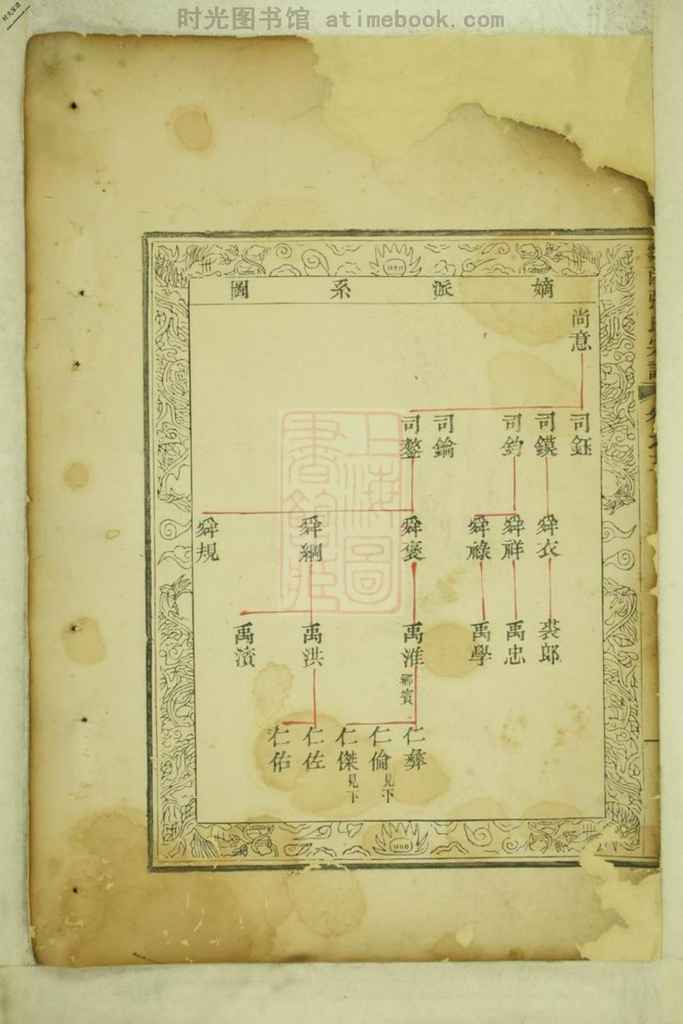 时光图书馆 atimebook.com
嫡派系圖
尚意
司鈺
司鏌
司鈞
司鑰
司鏊
舜衣
舜祥
舜祿
舜褒
舜綱
舜規
裘郎
禹忠
禹學
禹淮 鄉賓
禹洪
禹濱
仁彝
仁倫 見下
仁傑 見下
仁佐
仁佑
上海圖書館藏